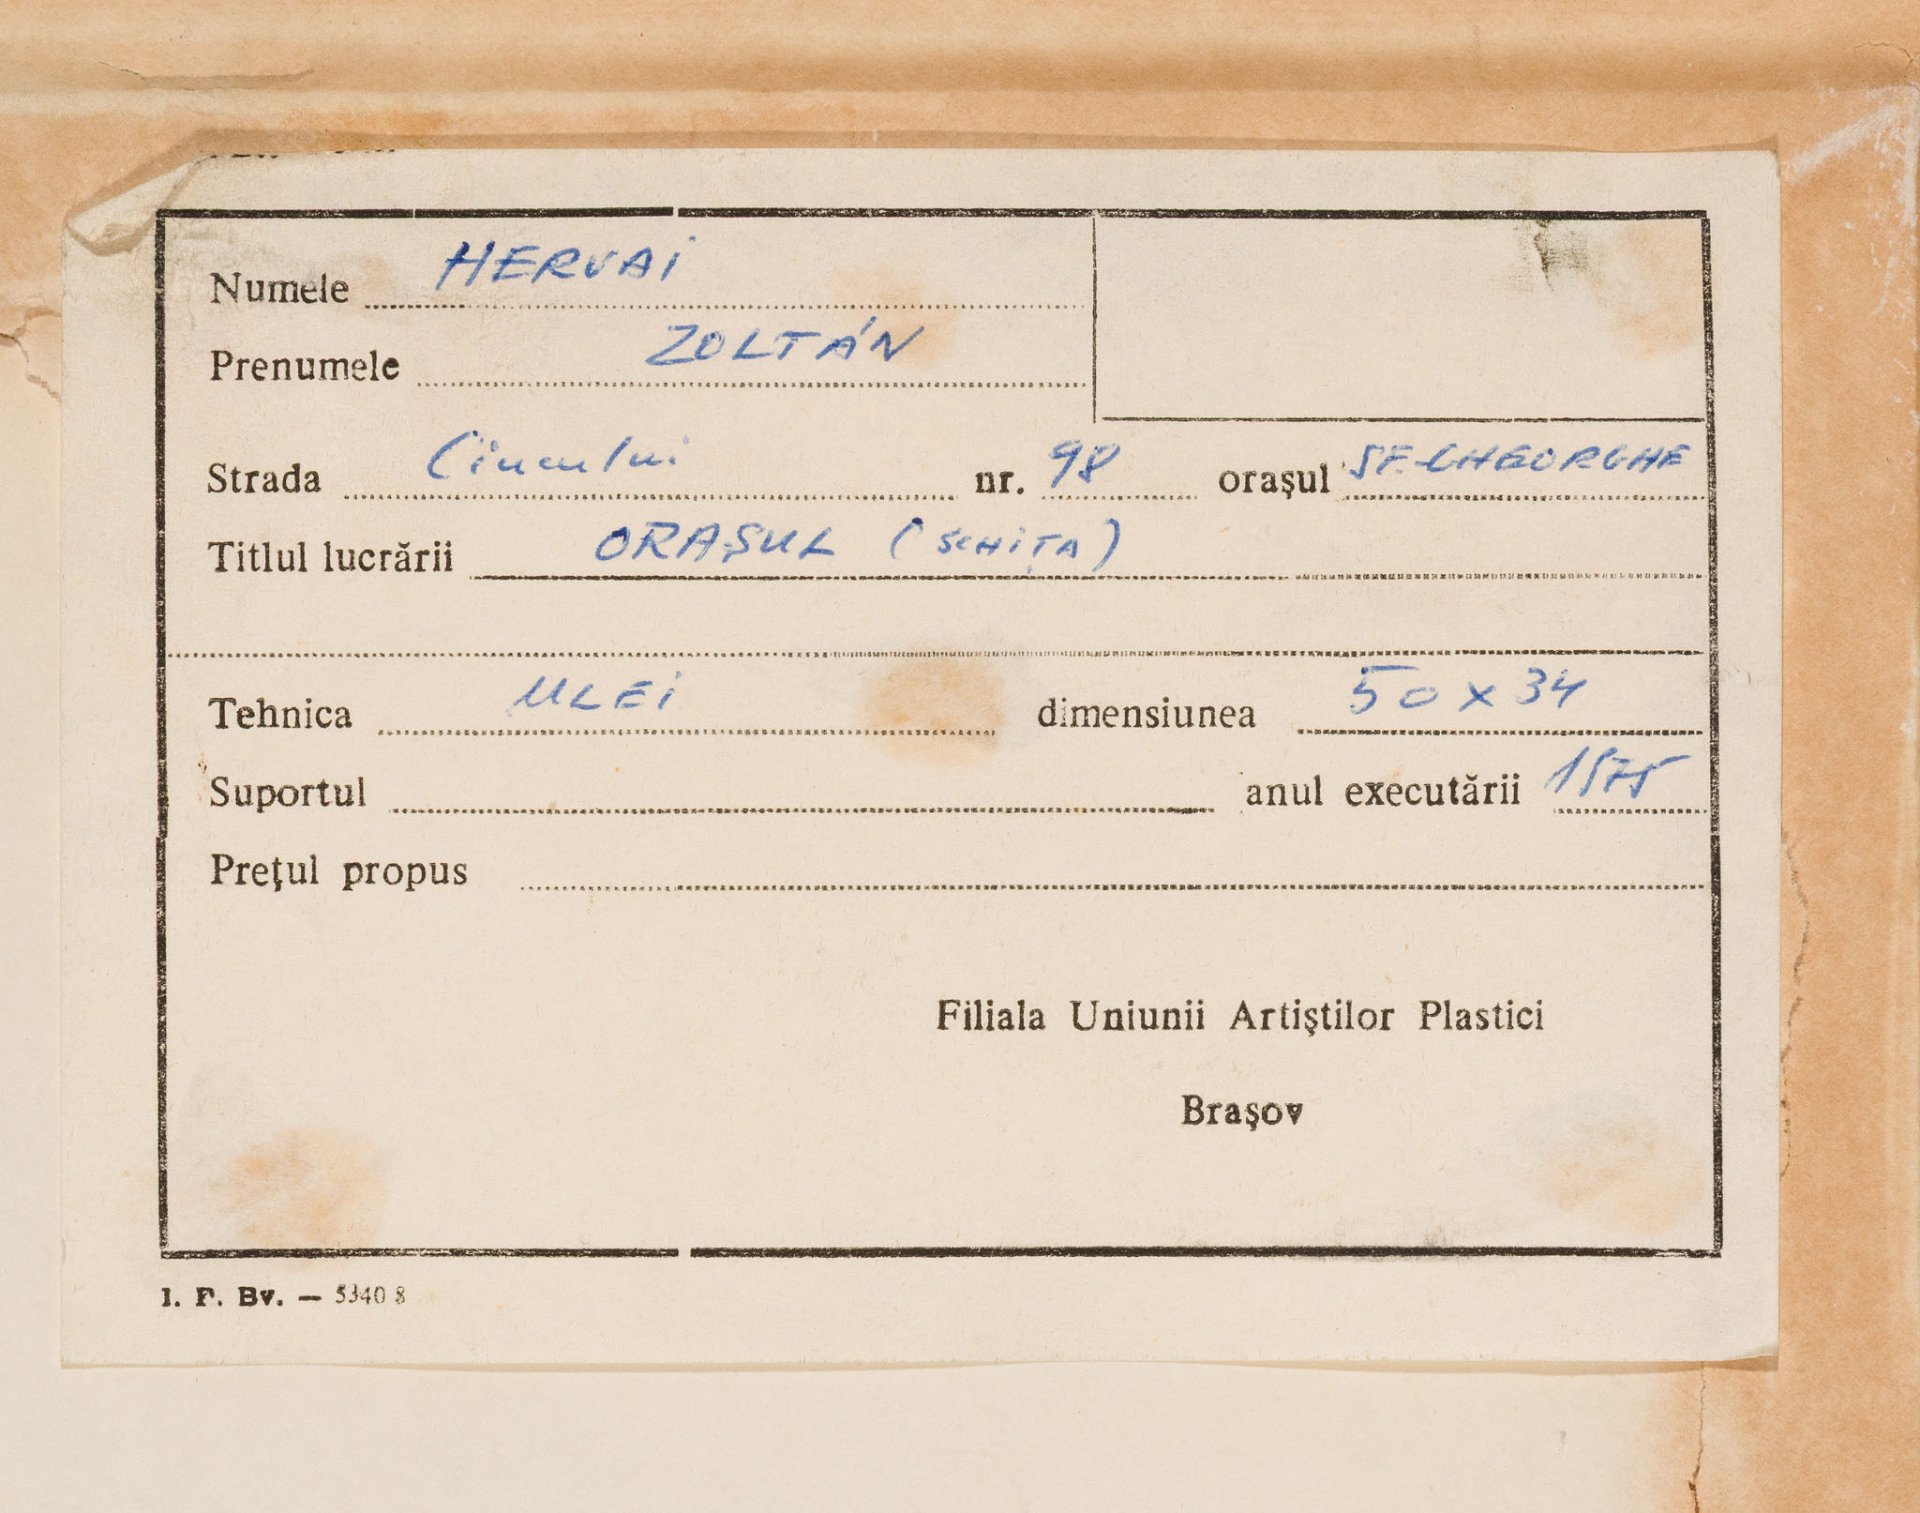 Numele HERVAI
Prenumele ZOLTÁN
Strada Ciucului nr. 98 orașul SF. GHEORGHE
Titlul lucrării ORAȘUL (SCHIȚA)
Tehnica ULEI dimensiunea 50 x 34
Suportul anul executării 1975
Prețul propus
Filiala Uniunii Artiștilor Plastici
Brașov
I. P. Bv. — 5340 8